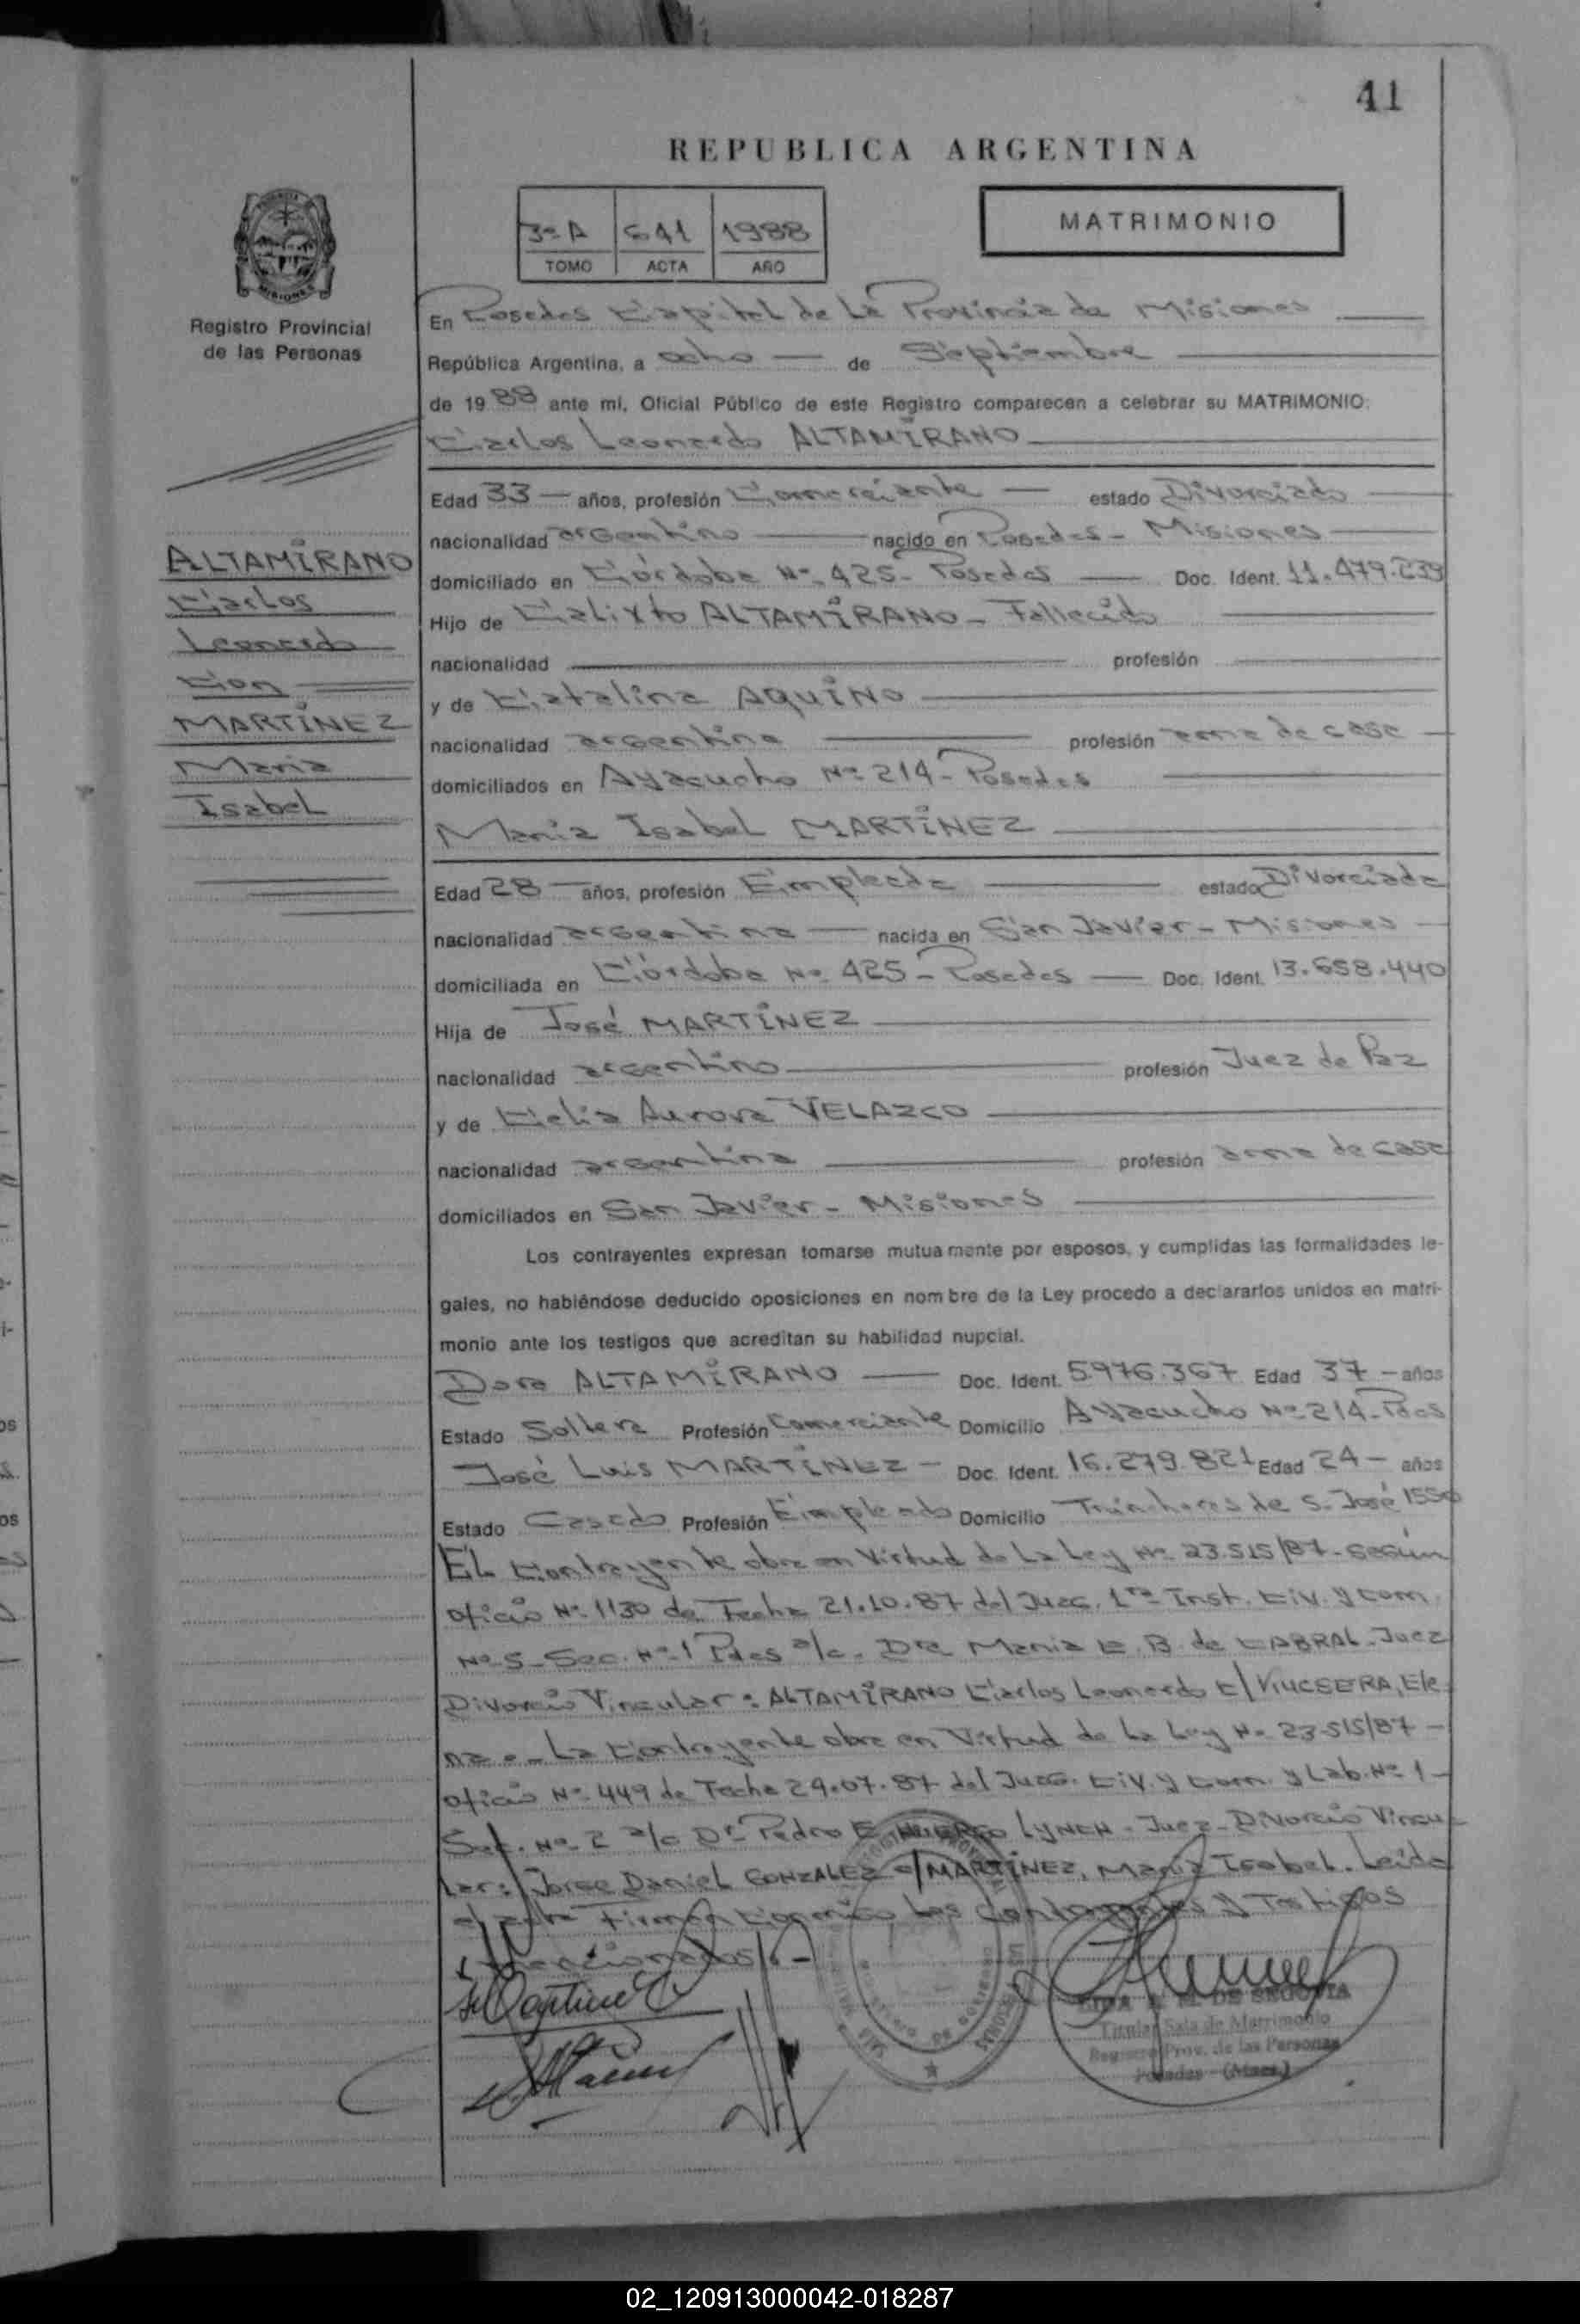 41
REPUBLICA ARGENTINA
3º A 641 1988
TOMO ACTA AÑO
MATRIMONIO
MISIONES
Registro Provincial
de las Personas
En Posadas Capital de La Provincia de Misiones
República Argentina, a ocho de Septiembre
de 1988 ante mí, Oficial Público de este Registro comparecen a celebrar su MATRIMONIO:
Carlos Leonardo ALTAMIRANO
Edad 33 años, profesión Comerciante estado Divorciado
nacionalidad argentino nacido en Posadas - Misiones
domiciliado en Córdoba Nº 425 - Posadas Doc. Ident. 11.479.239
Hijo de Calixto ALTAMIRANO - Fallecido
nacionalidad profesión
y de Catalina AQUINO
nacionalidad argentina profesión ama de casa
domiciliados en Ayacucho Nº 214 - Posadas
ALTAMIRANO
Carlos
Leonardo
Con
MARTINEZ
Maria
Isabel
Maria Isabel MARTINEZ
Edad 28 años, profesión Empleada estado Divorciada
nacionalidad argentina nacida en San Javier - Misiones
domiciliada en Córdoba Nº 425 - Posadas Doc. Ident. 13.658.440
Hija de José MARTINEZ
nacionalidad argentino profesión Juez de Paz
y de Celia Aurora VELAZCO
nacionalidad argentina profesión ama de casa
domiciliados en San Javier - Misiones
Los contrayentes expresan tomarse mutuamente por esposos, y cumplidas las formalidades le-
gales, no habiéndose deducido oposiciones en nombre de la Ley procedo a declararlos unidos en matri-
monio ante los testigos que acreditan su habilidad nupcial.
Dora ALTAMIRANO Doc. Ident. 5.976.367 Edad 37 - años
Estado Soltera Profesión Comerciante Domicilio Ayacucho Nº 214 - Pdas
José Luis MARTINEZ - Doc. Ident. 16.279.821 Edad 24 - años
Estado Casado Profesión Empleado Domicilio Trincheras de S. José 1550
El Contrayente obra en Virtud de La Ley Nº 23.515/87 - Según
oficio Nº 1130 de Fecha 21.10.87 del Juzg. 1ra Inst. Civ. y Com
Nº 5 - Sec. Nº 1 Pdas a/c. Dra Maria E. B. de CABRAL - Juez
Divorcio Vincular: ALTAMIRANO Carlos Leonardo C/ Ele
na. - La Contrayente obra en Virtud de La Ley Nº 23.515/87 -
oficio Nº 449 de Fecha 29.07.87 del Juzg. Civ. y Com. y Lab. Nº 1 -
Sec. Nº 2 a/c Dr Pedro E. LYNCH - Juez - Divorcio Vincu
lar: Jorge Daniel GONZALEZ c/ MARTINEZ, Maria Isabel. Leida
el acta Firman Conmigo Los Contrayentes y Testigos
mencionados. -
DE SEGOVIA
Titular Sala de Matrimonio
Registro Prov. de las Personas
Posadas - (Mnes.)
02_120913000042-018287